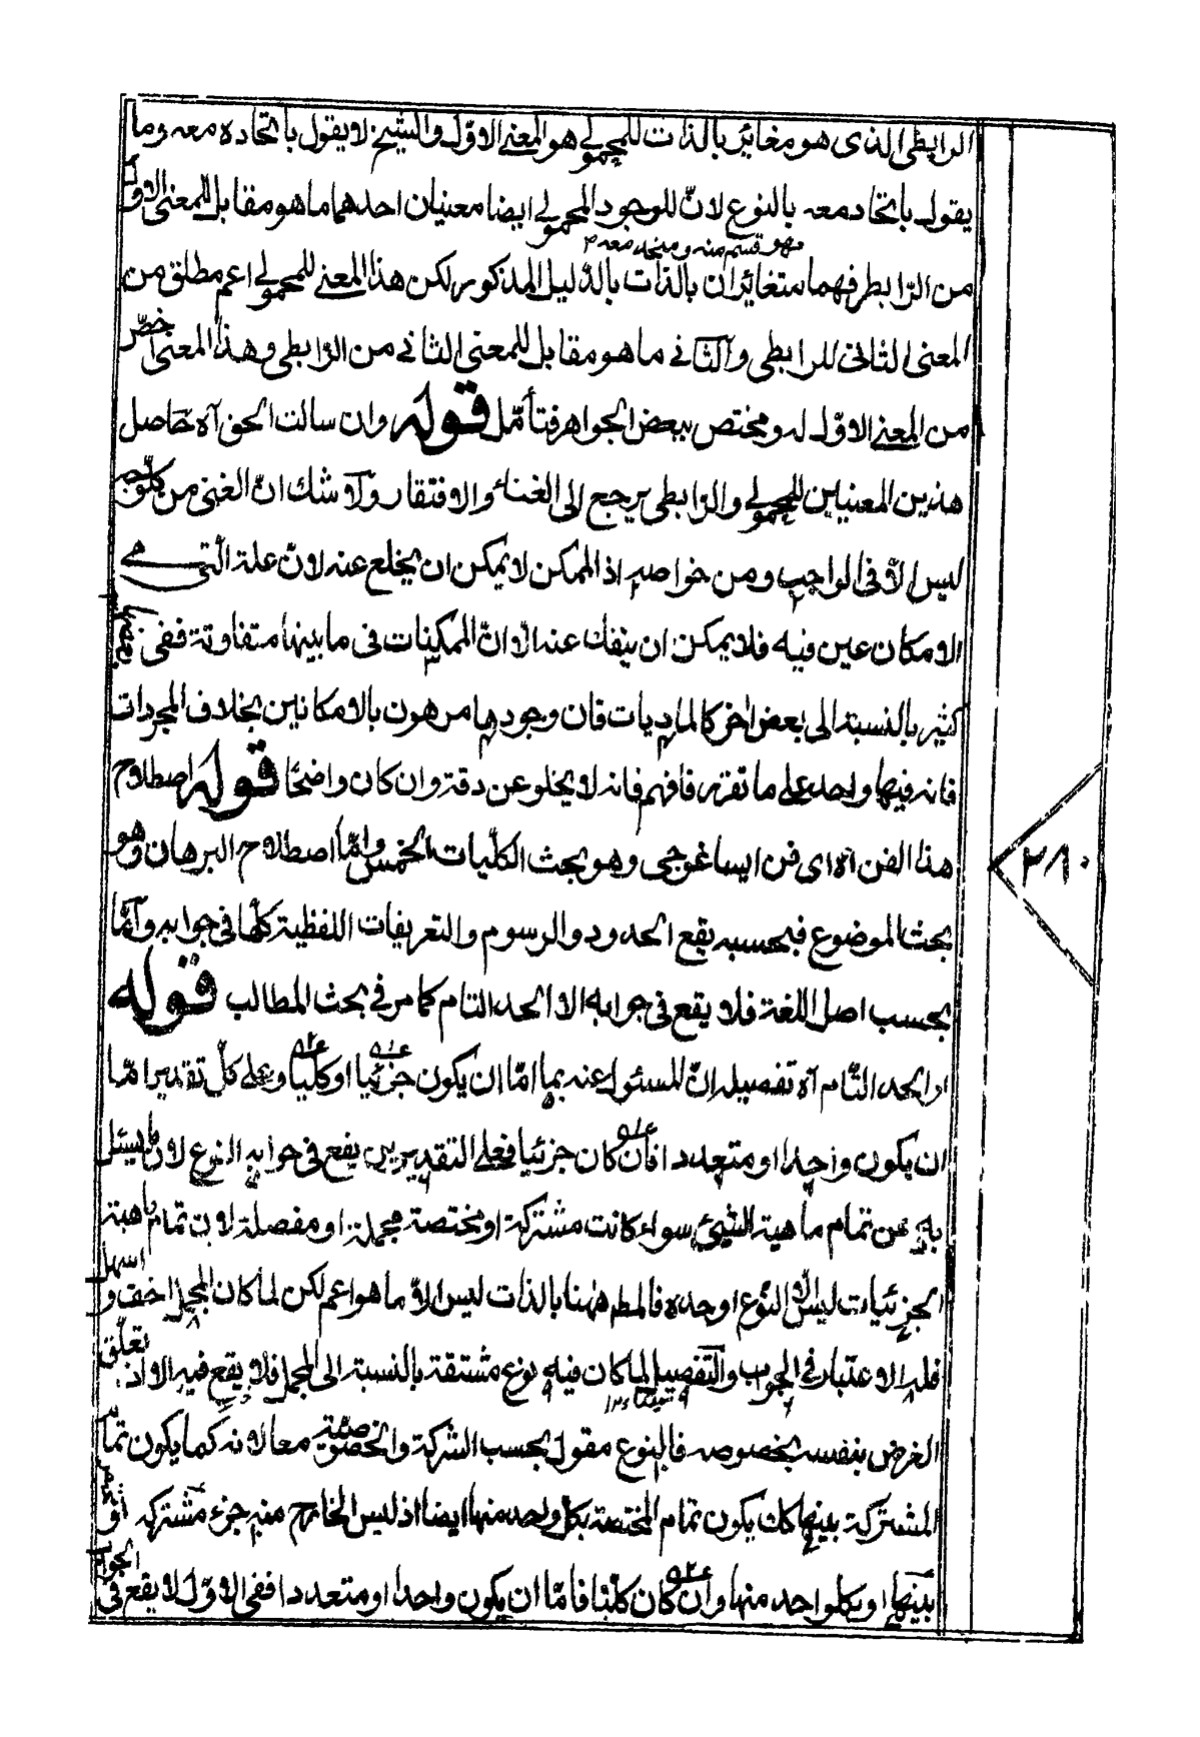 الرابطى الذى هو مغائر بالذات للمحمولي هو المعنى الاوّل والشيخ لا يقول باتحاده معه وما
يقول باتحاد معه بالنوع لانّ للوجود المحمولي ايضا معنيان احدهما ما هو مقابل للمعنى الاول
وهو قسم منه ومتحد معه ٣
من الرّابطى فهما متغائران بالذات بالدّليل المذكور لكن هذا المعنى للمحمولي اعم مطلق من
المعنى الثانى للرابطى والثانى ما هو مقابل للمعنى الثانى من الرّابطى وهذا المعنى اخصّ
من المعنى الاوّل له ومختص ببعض الجواهر فتأمّل قوله وان سالت الحق آه حاصل
هذين المعنيين للمحمولي والرّابطى يرجع الى الغناء والافتقار ولا شك انّ الغنى من كلّ
ليس الّا فى الواجب ومن خواصه اذ الممكن لا يمكن ان يخلع عنه لانّ علة التى
الامكان عين فيه فلا يمكن ان ينفك عنه الّا انّ الممكنات فى ما بينها متفاوتة ففى
كثير بالنسبة الى بعض اٰخر كالماديات فان وجودها مرهون بالامكانين بخلاف المجردات
فانه فيها واحد على ما تقرر فافهم فانه لا يخلو عن دقة وان كان واضحًا قوله اصطلاح
هذا الفن آه اى فن ايساغوجى وهو بحث الكلّيات الخمس وامّا اصطلاح البرهان وهو
بحث الموضوع فبحسبه يقع الحدود والرسوم والتعريفات اللفظية كلّها فى جوابه وامّا
بحسب اصل اللغة فلا يقع فى جوابه الا الحد التام كما مر فى بحث المطالب قوله
او الحد التّام آه تفصيله انّ المسئول عنه بما امّا ان يكون جزئيا او كليا وعلى كلّ تقدير امّا
ان يكون واحدا او متعددا فان كان جزئيا فعلى التقديرين يقع فى جوابه النوع لان ما يسئل
به عن تمام ماهية الشيئ سواء كانت مشتركة او مختصة مجملة او مفصلة لان تمام ماهية
الجزئيات ليس الّا النّوع او حده فالمط ههنا بالذات ليس الّا ما هو اعم لكن لما كان المجمل اخف و اسهل
فله الاعتبار فى الجواب والتفصيل لما كان فيه نوع مشتقة بالنسبة الى المجمل فلا يقع فيه الا اذا تعلّق
الغرض بنفسه بخصوصه فالنوع مقول بحسب الشركة والخصوصية معا لانه كما يكون تمام
المشتركة بينها كك يكون تمام المختصة بكل واحد منها ايضا اذ ليس الخارج منه جزء مشتركه
بينها او بكلواحد منها وان كان كليّا فامّا ان يكون واحدا او متعددا ففى الاوّل لا يقع فى الجواب
٢٨٠